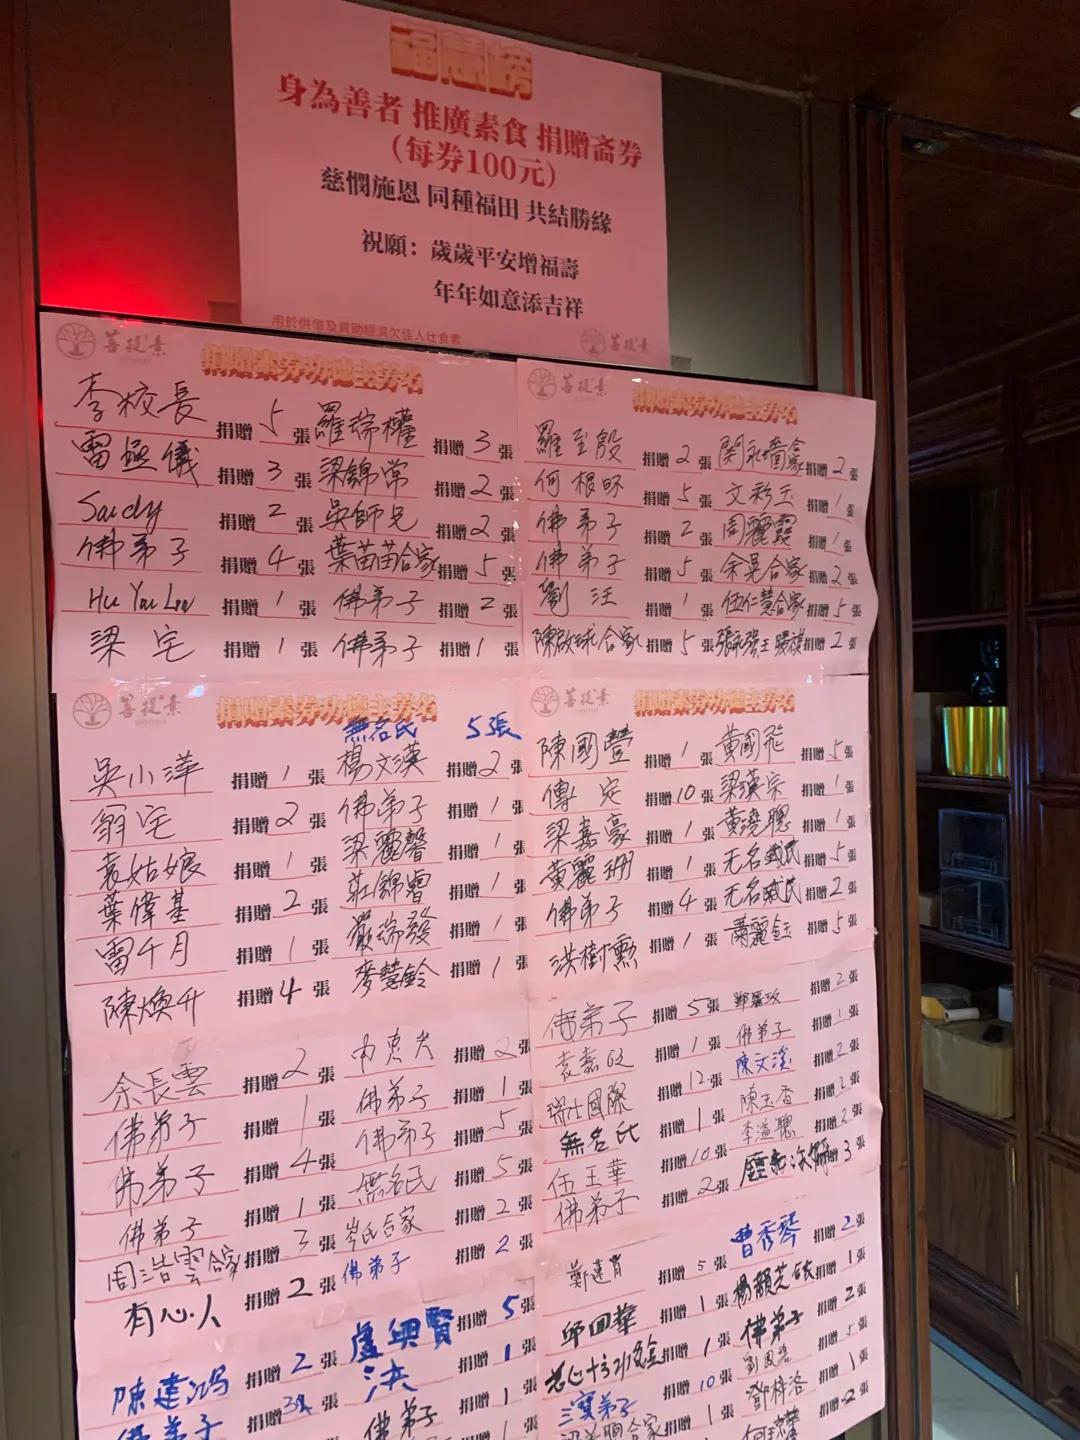 福慧榜
身為善者 推廣素食 捐贈齋券
(每券100元)
慈憫施恩 同種福田 共結勝緣
祝願：歲歲平安增福壽
年年如意添吉祥
用於供僧及資助經濟欠佳人仕食素
菩提素
菩提素
捐贈素券功德主芳名
李校長 捐贈 5 張 羅瑞權 捐贈 3 張
雷 儀 捐贈 3 張 梁錦常 捐贈 2 張
捐贈 2 張 吳師兄 捐贈 2 張
佛弟子 捐贈 4 張 葉苗苗合家 捐贈 5 張
捐贈 1 張 佛弟子 捐贈 2 張
梁宅 捐贈 1 張 佛弟子 捐贈 1 張
菩提素
捐贈素券功德主芳名
羅至殷 捐贈 2 張 捐贈 2 張
何根 捐贈 5 張 文彩玉 捐贈 1 張
佛弟子 捐贈 2 張 周麗霞 捐贈 1 張
佛弟子 捐贈 5 張 余晃合家 捐贈 2 張
劉汪 捐贈 1 張 伍仁慧合家 捐贈 5 張
陳啟球合家 捐贈 5 張 捐贈 2 張
菩提素
捐贈素券功德主芳名
無名氏 5張
吳小萍 捐贈 1 張 楊文漢 捐贈 2 張
翁宅 捐贈 2 張 佛弟子 捐贈 1 張
袁姑娘 捐贈 1 張 梁麗馨 捐贈 1 張
葉偉基 捐贈 2 張 莊錦睿 捐贈 1 張
雷千月 捐贈 1 張 嚴瑞發 捐贈 1 張
陳煥升 捐贈 4 張 麥慧鈴 捐贈 1 張
余長雲 捐贈 2 張 捐贈 2 張
佛弟子 捐贈 1 張 佛弟子 捐贈 1 張
佛弟子 捐贈 4 張 佛弟子 捐贈 5 張
佛弟子 捐贈 1 張 無名氏 捐贈 5 張
周浩雲合家 捐贈 3 張 岑氏合家 捐贈 2 張
有心人 捐贈 2 張 佛弟子 捐贈 2 張
陳建鴻 捐贈 2 張 盧興賢 捐贈 5 張
佛弟子 捐贈 張 洪 捐贈 1 張
佛弟子 捐贈 1 張
菩提素
捐贈素券功德主芳名
陳國豐 捐贈 1 張 黃國飛 捐贈 5 張
傅定 捐贈 10 張 梁漢宗 捐贈 1 張
梁嘉豪 捐贈 1 張 黃澆聰 捐贈 1 張
黃麗珊 捐贈 1 張 无名 氏 捐贈 5 張
佛弟子 捐贈 4 張 无名 氏 捐贈 2 張
洪樹勲 捐贈 1 張 蕭麗鈺 捐贈 5 張
佛弟子 捐贈 5 張 捐贈 2 張
袁嘉 捐贈 1 張 佛弟子 捐贈 1 張
瑞仕國際 捐贈 12 張 陳文溪 捐贈 2 張
無名氏 捐贈 1 張 陳玉香 捐贈 張
伍玉華 捐贈 10 張 李溢聰 捐贈 2 張
佛弟子 捐贈 2 張 捐贈 3 張
鄭蓮 捐贈 5 張 曹秀琴 捐贈 2 張
邱回華 捐贈 1 張 捐贈 1 張
捐贈 1 張 佛弟子 捐贈 2 張
三寶弟子 捐贈 10 張 捐贈 5 張
合家 捐贈 1 張 鄧梓洛 捐贈 1 張
捐贈 2 張